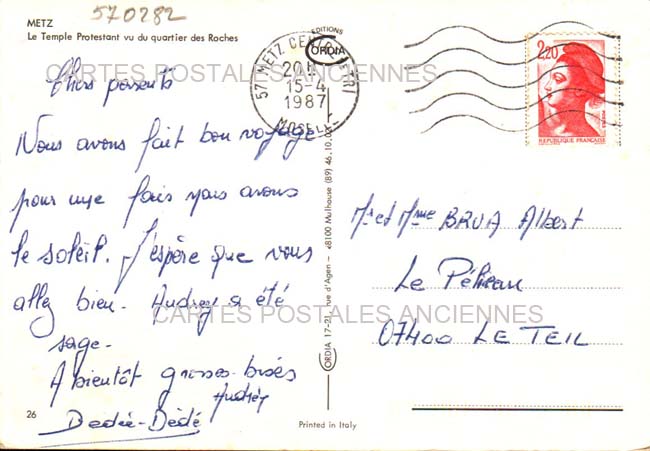 570282
METZ
Le Temple Protestant vu du quartier des Roches
Chers parents
Nous avons fait bon voyage
pour une fois nous avons
le soleil. J'espère que vous
allez bien. Audrey a été
sage.
A bientôt grosses bises
Audrey
Dedée-Dédé
26
EDITIONS
ORDIA
57 METZ CENTRE
20H
15-4
1987
MOSELLE
2,20
REPUBLIQUE FRANÇAISE
ORDIA 17-21, rue d'Agen - 68100 Mulhouse (89) 46.10.
Mr et Mme BRUA Albert
Le
07400 LE TEIL
CARTES POSTALES ANCIENNES
CARTES POSTALES ANCIENNES
Printed in Italy